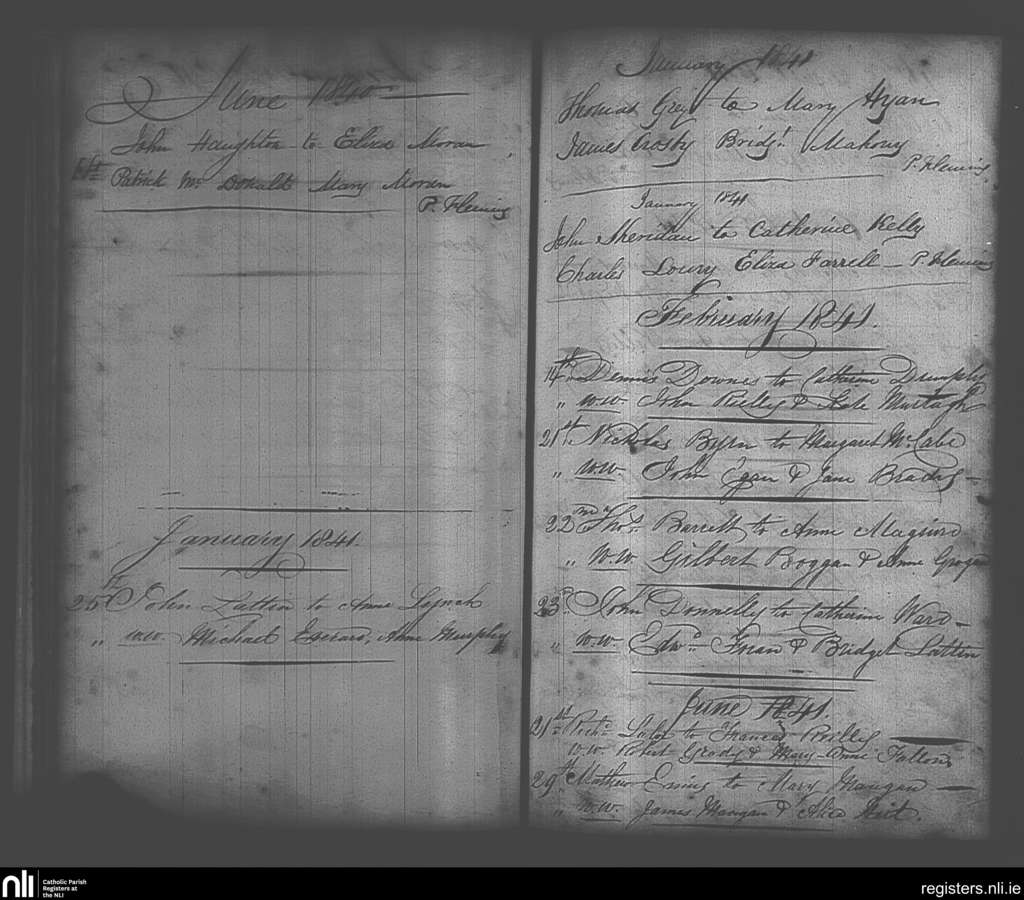 June 1840
John Haughton to Eliza Moran
Patrick Mc Donald Mary Moran
P. Fleming
January 1841.
25th John Lattin to Anne Lynch
" w.w. Michael Anne Murphy
January 1841
Thomas Grey to Mary Hyan
James Crosby Bridgt. Mahony
P. Fleming
January 1841
John Sheridan to Catherine Kelly
Charles Lowry Eliza Farrell — P. Fleming
February 1841.
14th Dennis Downes to Catherine
" w.w. John Reilly & Kate Murtagh
21st Nicholas Byrn to Margaret McCabe
" w.w. John Egan & Jane Brady —
22nd Thos. Barrett to Anne Maguire
" w.w. Gilbert Boggan & Anne Grogan
23rd John Donnelly to Catherine Ward —
" w.w. Edwd. & Bridget Lattin
June 1841.
21st Richd. Lalor to Frances Reilly
w.w. Robert Grady & Mary Anne Fallon
29th Mathew to Mary Mangan —
" w.w. James Mangan & Alice
NLI
Catholic Parish
Registers at
the NLI
registers.nli.ie